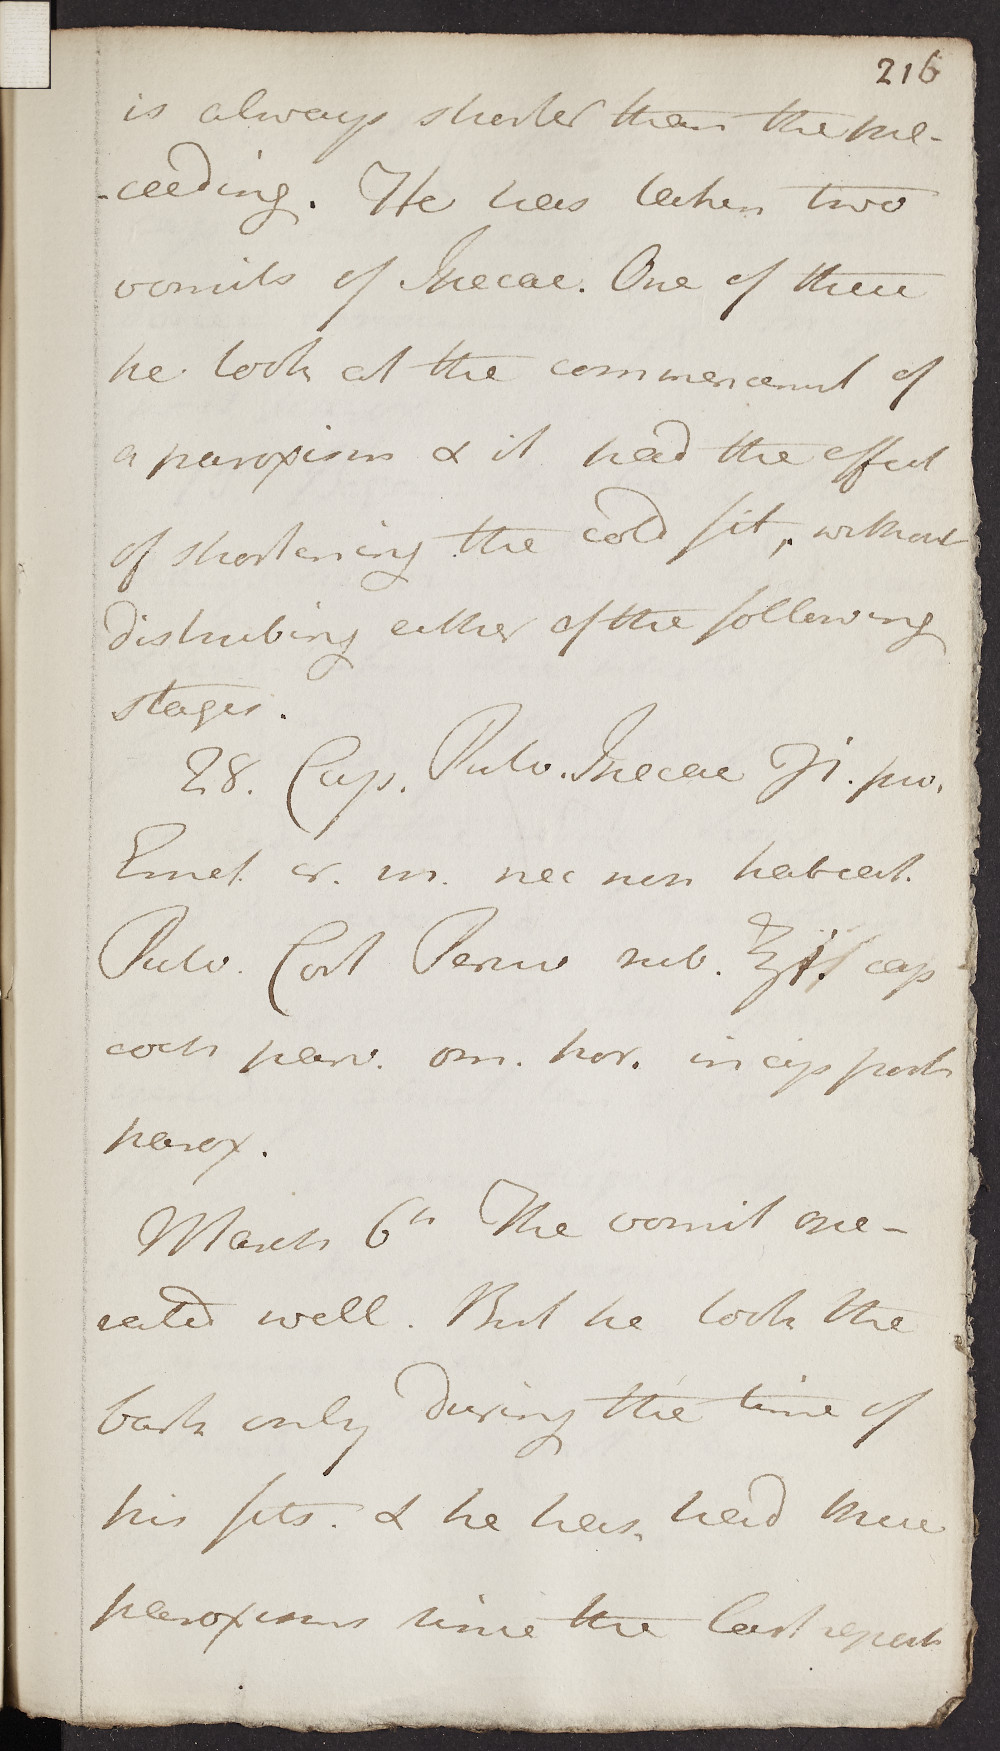 216
is always shorter than the pre-
-ceeding. He has taken two
vomits of Ipecac. One of these
he took at the commencemt of
a paroxism & it had the effect
of shortening the cold fit, without
disturbing either of the following
stages.
28. Cap. Pulv. Ipecac ℈i. pro.
Emet. cr. m. nec non habeat.
Pulv. Cort Peruv rub. ℥iſs cap
coch parv. om. hor. incip post
parox.
March 6th The vomit ope-
rated well. But he took the
bark only during the time of
his fits. & he has had three
paroxisms since the last report